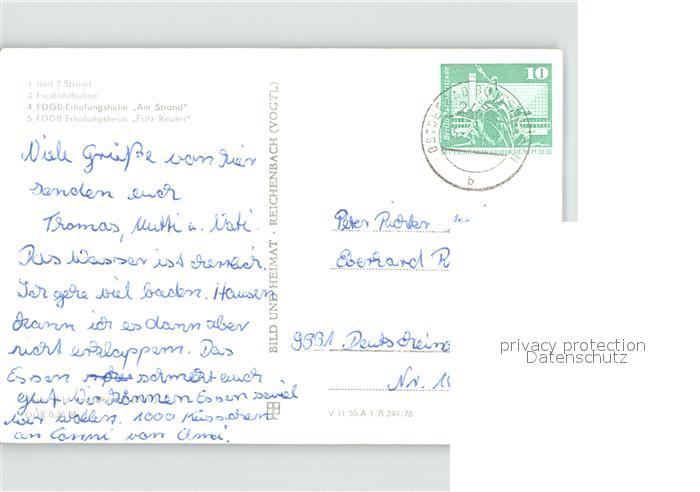 1 und 2 Strand
3 Freilichtbühne
4 FDGB-Erholungsheim „Am Strand"
5 FDGB-Erholungsheim „Fritz Reuter"
Viele Grüße von hier
senden euch
Thomas, Mutti u. Vati.
Das Wasser ist herrlich.
Ich gehe viel baden.
kann ich es dann aber
nicht Das
Essen schmeckt auch
gut. Wir können Essen soviel
wir wollen. 1000 Küsschen
an Conni von Omi.
BILD UND HEIMAT · REICHENBACH (VOGTL)
V 11 50 A 1/B 249/78
10
DEUTSCHE DEMOKRATISCHE REPUBLIK
b
Peter Richter
Eberhard R
9331 Deutschein
Nr. 1
privacy protection
Datenschutz